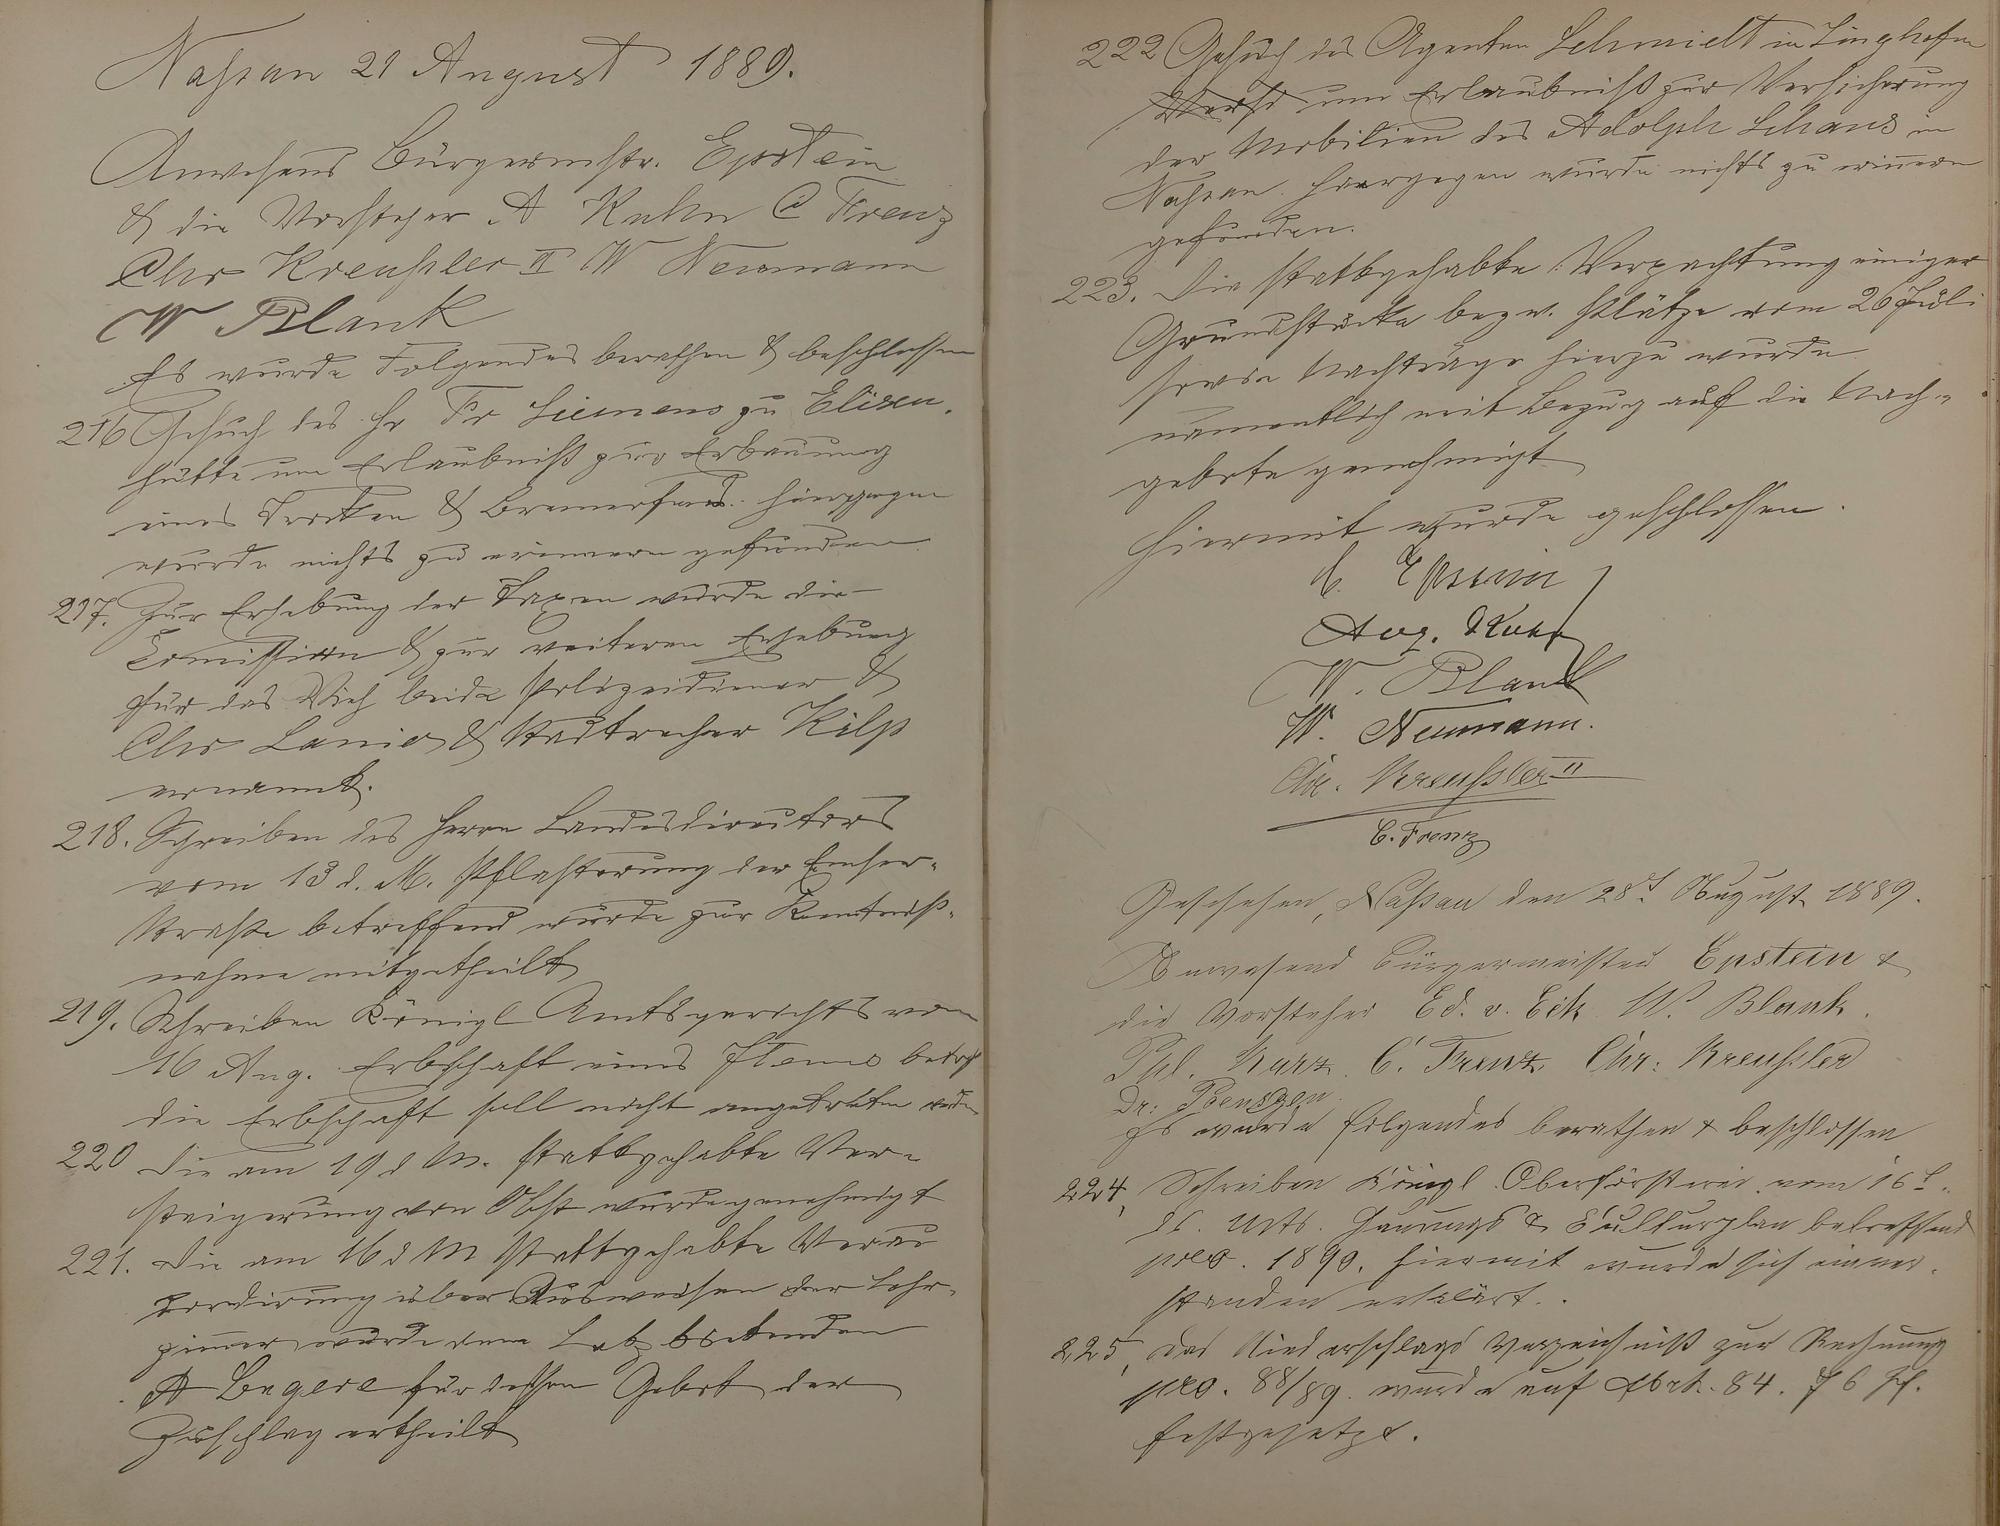 Nassau 21 August 1889.
Anwesend Bürgermstr. Epstein
& die Vorsteher A Kuhn C Frenz
Chr Kreußler II W Neumann
W Blank
Es wurde Folgendes berathen & beschlossen
216 Gesuch des Hr Fr Siemens zu Elisen-
hütte um Erlaubniß zur Erbauung
eines Trocken & Brennofens. Hiergegen
wurde nichts zu erinnern gefunden
217. Zur Erhebung der Taxen wurde die
Comission & zur weiteren Erhebung
für das Vieh beide Polizeidiener &
Chr Lanio & Stadtrechner Kilp
ernannt.
218. Schreiben des Herrn Landesdirectors
vom 13 d. M. Pflasterung der Emser-
straße betreffend wurde zur Kentniß-
nahme mitgetheilt
219. Schreiben Königl Amtsgerichts vom
16 Aug. Erbschaft eines betrf
die Erbschaft soll nicht angetreten werden
220 Die am 19 d M. stattgehabte Ver-
steigerung von Obst wurde genehmigt
221. Die am 16 d M stattgehabte Verac
cordirung über Ausweisen der Lehr-
zimmer wurde dem Letzbietenden
A für dessen Gebot der
Zuschlag ertheilt
222 Gesuch des Agenten Schmidt in Singhofen
um Erlaubniß zur Versicherung
der Mobilien des Adolph Schans in
Nassau. Hiergegen wurde nichts zu erinnern
gefunden.
223. Die stattgehabte Verpachtung einiger
Grundstücke bezw. Plätze vom 26 Juli
sowie Nachträge hierzu wurde
namentlich mit Bezug auf die Nach-
gebote genehmigt
Hiermit wurde geschlossen.
Epstein
Aug. Kuhn
W. Blank
W. Neumann.
Chr. Kreußler II
C. Frenz
Geschehen, Nassau den 28t August 1889.
Anwesend Bürgermeister Epstein &
die Vorsteher Ed. v. Eck W. Blank.
Phl. Kurz. C. Frenz. Chr: Kreußler
Dr: Poensgen
Es wurde folgendes berathen & beschlossen
224, Schreiben Königl Oberförsterei vom 16t
ds. Mts. Hauungs & Culturplan betreffend
pro. 1890. Hiermit wurde sich einver-
standen erklärt.
225, Das Niederschlags Verzeichniß zur Rechnung
pro. 88/89. wurde auf Mrk. 84. 76 Pf.
festgesetzt.